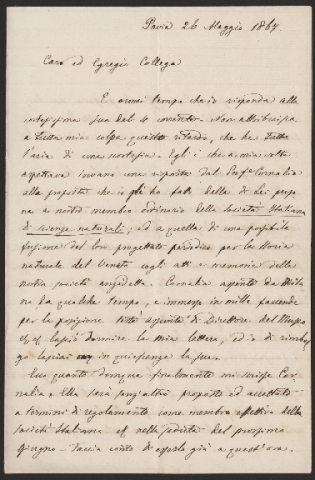 Pavia 26 Maggio 1867.
Caro ed Egregio Collega
È ormai tempo ch'io risponda alla
cortesissima sua del 4 corrente. Non attribuisca
a tutta mia colpa questo ritardo, che ha tutta
l'aria di una scortesia. Egli è che a mia volta
aspettava invano una risposta dal Prof. Cornalia
alla proposta che io gli ho fatt della di Lei perso
na a nostro membro ordinario della Società Italiana
di scienze naturali; ed a quella di una possibile
fusione del Loro progettato periodico per la storia
naturale del Veneto cogli atti e memorie della
nostra società anzidetta. Cornalia assente da Mila
no da qualche tempo, e immerso in mille faccende
per la posizione testè assunta di Direttore del Museo
ec. ec. lasciò dormire la mia lettera, ed io di rimbal
zo lasciai in quiescenza la sua.
Ecco quanto dunque finalmente mi scrisse Cor
nalia. Ella sarà senz'altro proposto ed accettato
a termini di regolamento come membro effettivo della
Società Italiana nella seduta del prossimo
Giugno. Faccia conto di esserlo già a quest'ora.